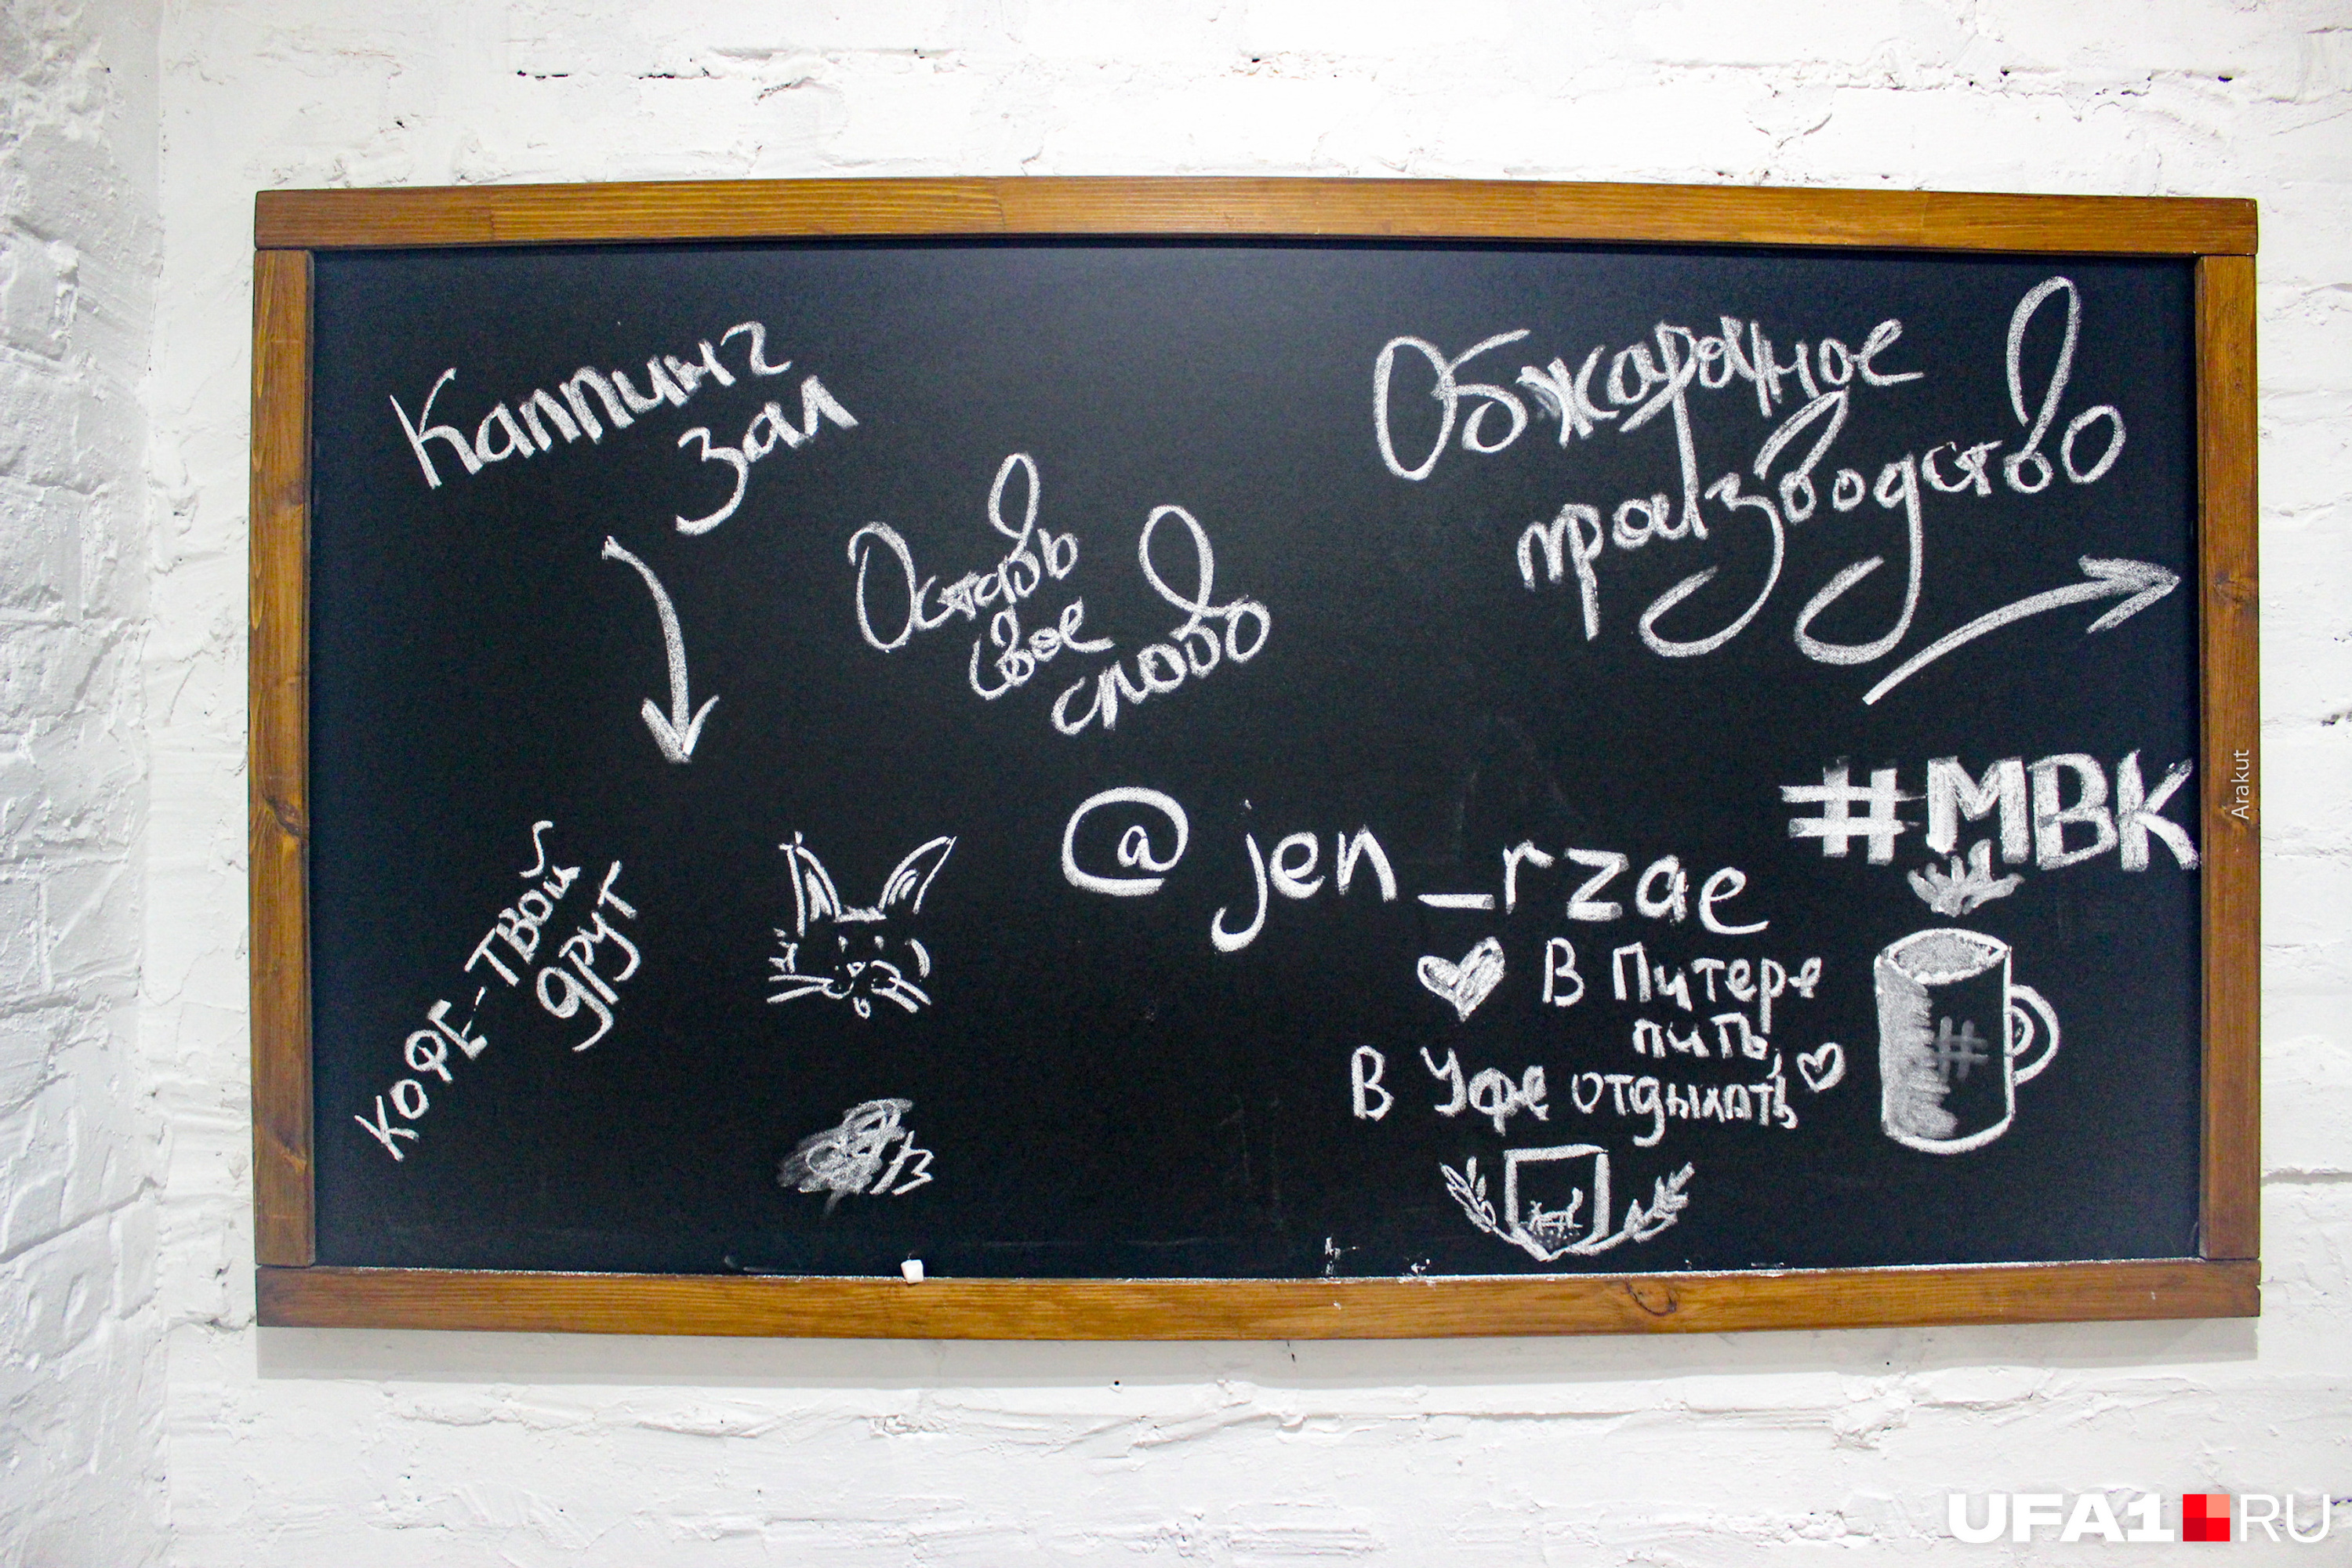 Каппинг
зал
Обжарочное
производство
Оставь
свое
слово
#МВК
@jen_rzae
Кофе-твой
друг
В Питере
пить,
В Уфе отдыхать
#
Arakut
UFA1.RU